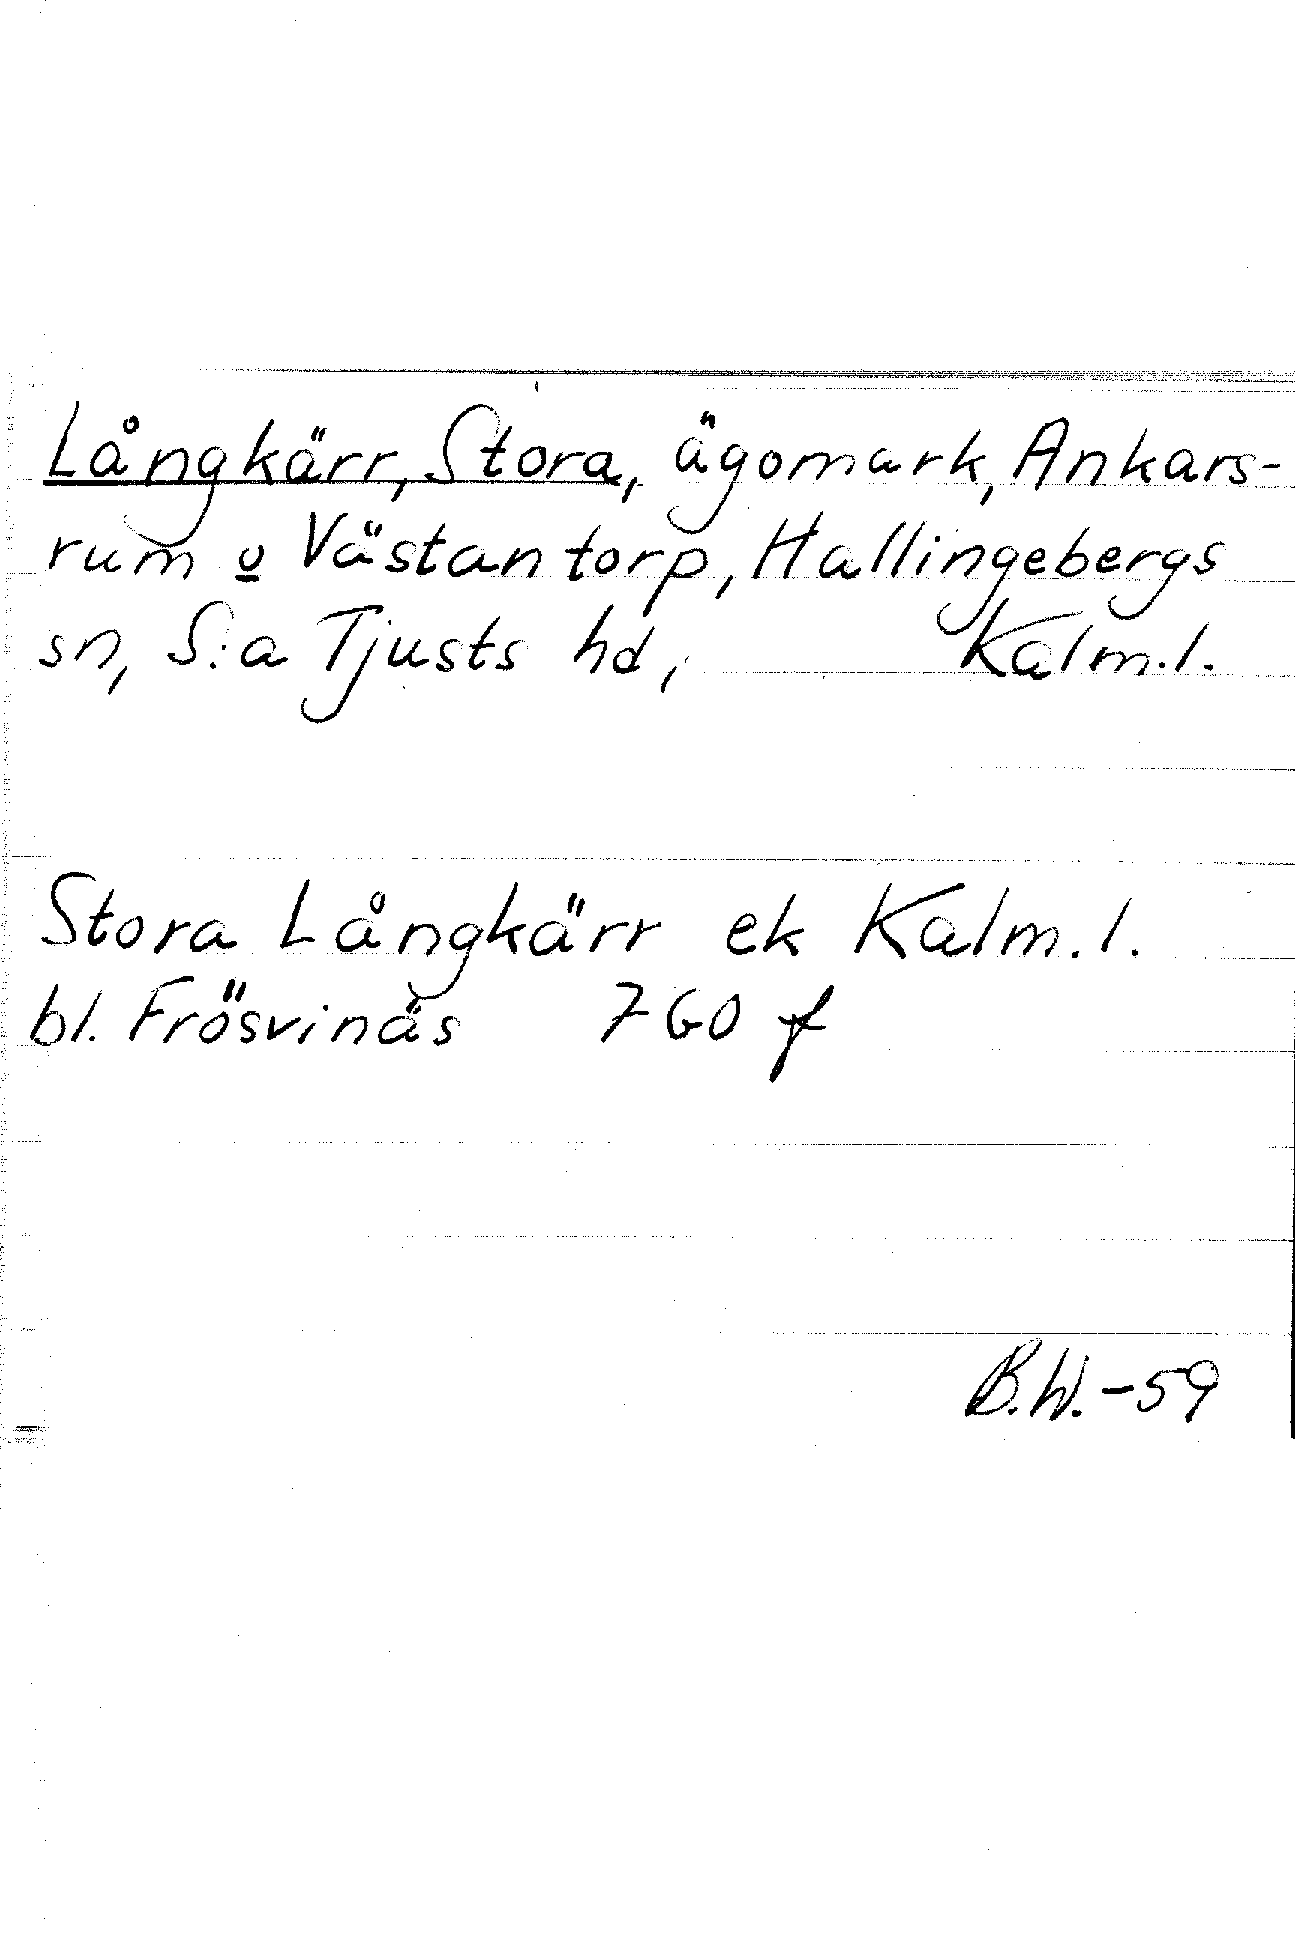 Långkärr, Stora, ägomark, Ankars-
rum o Västantorp, Hallingebergs
sn, S:a Tjusts hd, Kalm.l.
Stora Långkärr ek Kalm.l.
bl. Frösvinäs 7 GO f
B.W.-59